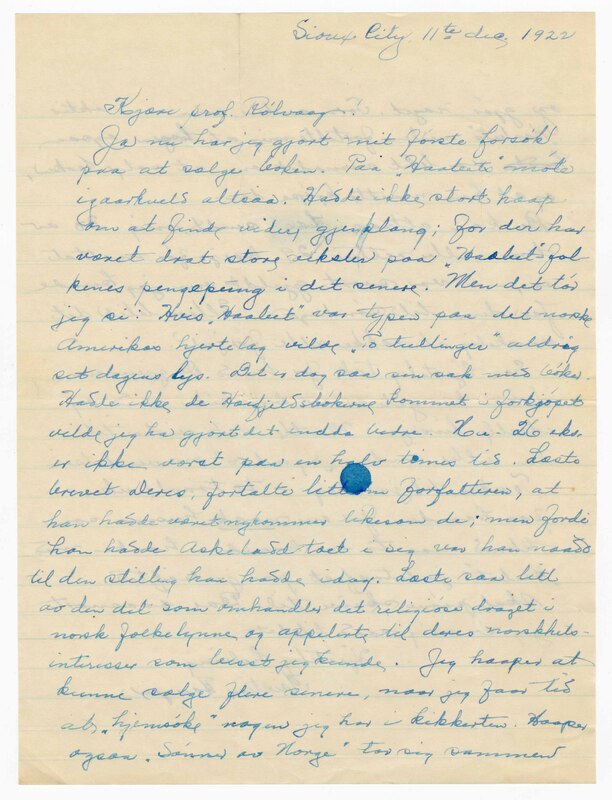 Sioux City, 11te dec, 1922
Kjære prof. Rölvaag.
Ja nu har jeg gjort mit første forsök
paa at sælge boken. Paa "Haaleits" möte
igaarkveld altsaa. Hadde ikke stort haap
om at finde videre gjenklang; for der har
været drat store veksler paa "Haaleit" fol
kenes pengepung i det senere. Men det tör
jeg si: Hvis "Haaleit" var typen paa det norske
Amerikas hjertelag vilde "To tullinger" aldrig
set dagens lys. Det er dog saa sin sak med böker.
Hadde ikke de bökerne kommet i forkjøpet
vilde jeg ha gjort det endda bedre. Nu. 26 eks.
er ikke værst paa en halv times tid. Læste
brevet Deres, fortalte litt om forfatteren, at
han hadde været nykommer likesom de; men fordi
han hadde Askeladd toet i sig var han naadd
til den stilling han hadde idag. Læste saa litt
av den del som omhandler det religiöse draget i
norsk folkelynne og appelerte til deres norskhets-
interesser som besst jeg kunde. Jeg haaper at
kunne sælge flere senere, naar jeg faar tid
at "hjemsöke" nogen jeg har i kikkerten. Haaper
ogsaa "Sönner av Norge" tar sig sammen